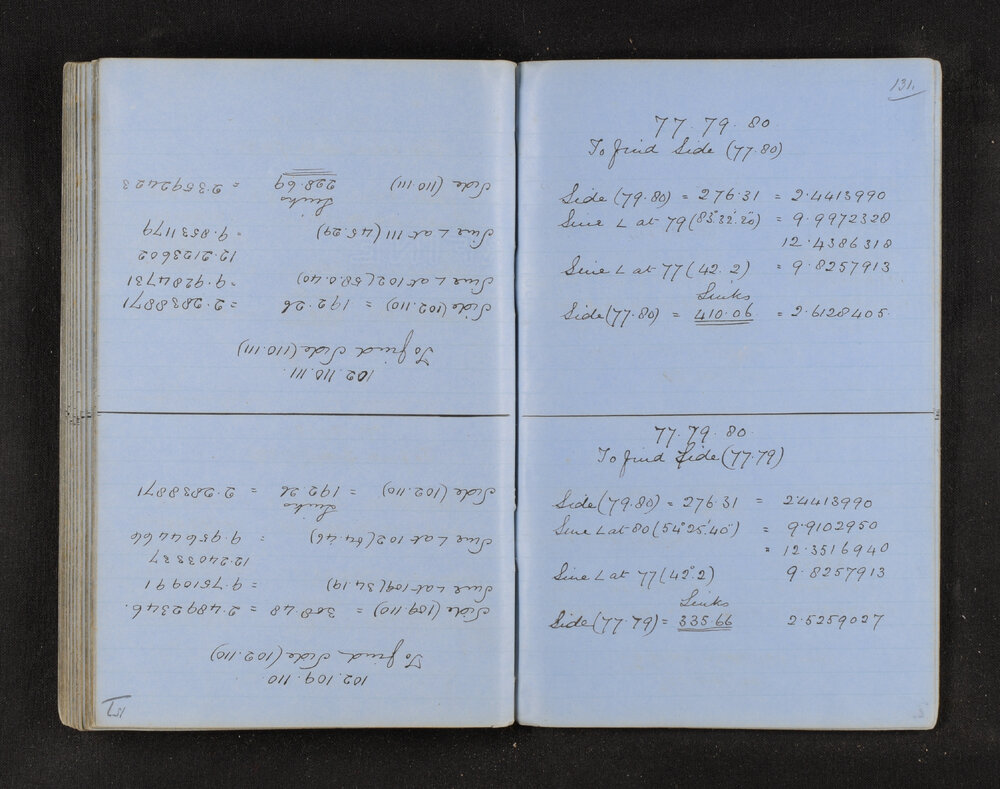 102. 109. 110
To find Side (102.110)
Side (109.110) = 308.48 = 2.4892346.
Sine ∠ at 109 (34.19) = 9.7510991
12.2403337
Sine ∠ at 102 (64.46) = 9.9564466
Links
Side (102.110) = 192.26 = 2.2838871
102. 110. 111.
To find Side (110.111)
Side (102.110) = 192.26 = 2.2838871
Sine ∠ at 102 (58.0.40) = 9.9284731
12.2123602
Sine ∠ at 111 (45.29) = 9.8531179
Links
Side (110.111) 228.69 = 2.3592423
131.
77 79. 80
To find Side (77.80)
Side (79.80) = 276.31 = 2.4413990
Sine ∠ at 79 (83°32'.20") = 9.9972328
12.4386318
Sine ∠ at 77 (42.2) = 9.8257913
Links
Side (77.80) = 410.06 = 2.6128405.
77. 79. 80.
To find Side (77.79)
Side (79.80) = 276.31 = 2.4413990
Sine ∠ at 80 (54°25'.40") = 9.9102950
= 12.3516940
Sine ∠ at 77 (42°.2) 9.8257913
Links
Side (77.79) = 335.66 2.5259027